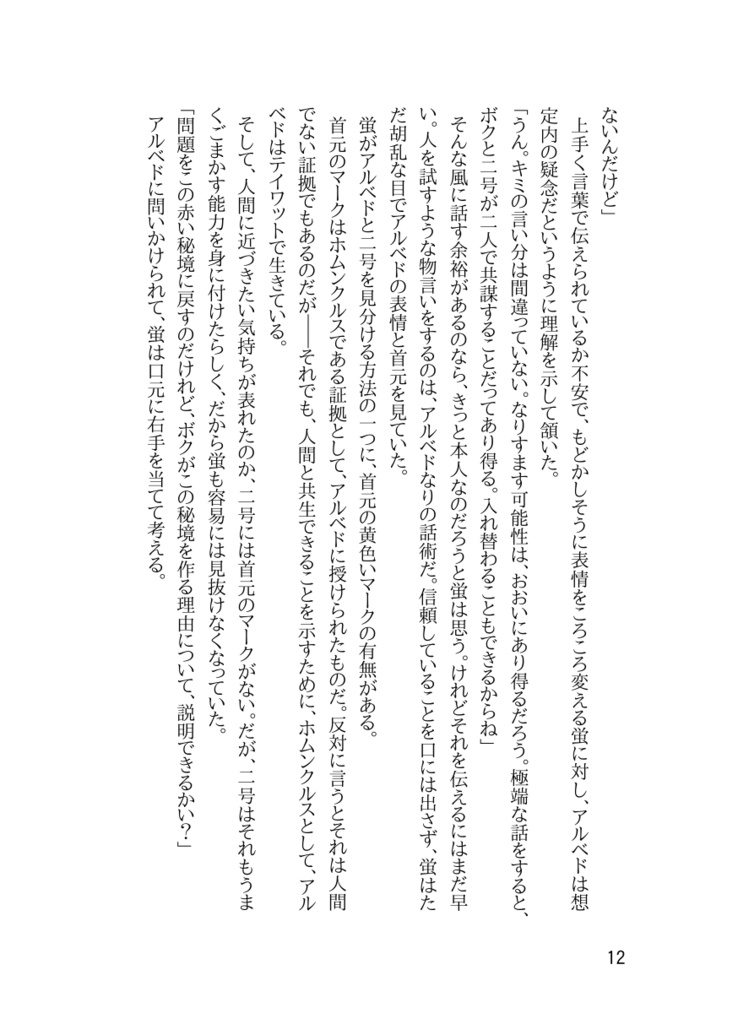 ないんだけど」
　上手く言葉で伝えられているか不安で、もどかしそうに表情をころころ変える蛍に対し、アルベドは想
定内の疑念だというように理解を示して頷いた。
「うん。キミの言い分は間違っていない。なりすます可能性は、おおいにあり得るだろう。極端な話をすると、
ボクと二号が二人で共謀することだってあり得る。入れ替わることもできるからね」
　そんな風に話す余裕があるのなら、きっと本人なのだろうと蛍は思う。けれどそれを伝えるにはまだ早
い。人を試すような物言いをするのは、アルベドなりの話術だ。信頼していることを口には出さず、蛍はた
だ胡乱な目でアルベドの表情と首元を見ていた。
　蛍がアルベドと二号を見分ける方法の一つに、首元の黄色いマークの有無がある。
　首元のマークはホムンクルスである証拠として、アルベドに授けられたものだ。反対に言うとそれは人間
でない証拠でもあるのだが――それでも、人間と共生できることを示すために、ホムンクルスとして、アル
ベドはテイワットで生きている。
　そして、人間に近づきたい気持ちが表れたのか、二号には首元のマークがない。だが、二号はそれもうま
くごまかす能力を身に付けたらしく、だから蛍も容易には見抜けなくなっていた。
「問題をこの赤い秘境に戻すのだけれど、ボクがこの秘境を作る理由について、説明できるかい？」
　アルベドに問いかけられて、蛍は口元に右手を当てて考える。
12